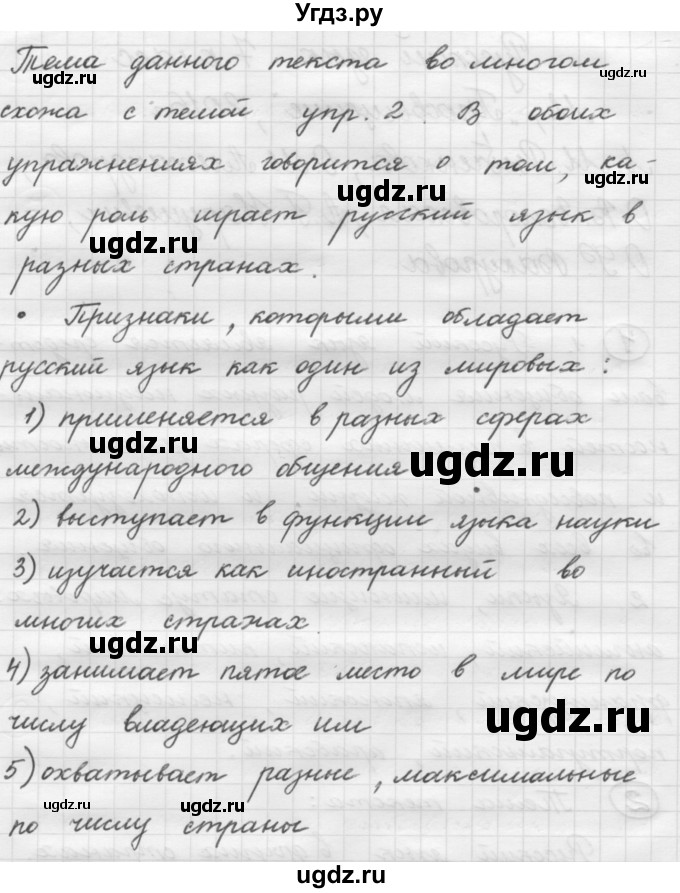 Угдз.ру
Тема данного текста во многом
схожа с темой упр. 2. В обоих
упражнениях говорится о том, ка-
кую роль играет русский язык в
разных странах.
• Признаки, которыми обладает
русский язык как один из мировых:
1) применяется в разных сферах
международного общения
2) выступает в функции языка науки
3) изучается как иностранный во
многих странах
4) занимает пятое место в мире по
числу владеющих им
5) охватывает разные, максимальные
по числу страны
ugdz.ru
ugdz.ru
ugdz.ru
ugdz.ru
ugdz.ru
ugdz.ru
ugdz.ru
ugdz.ru
ugdz.ru
ugdz.ru